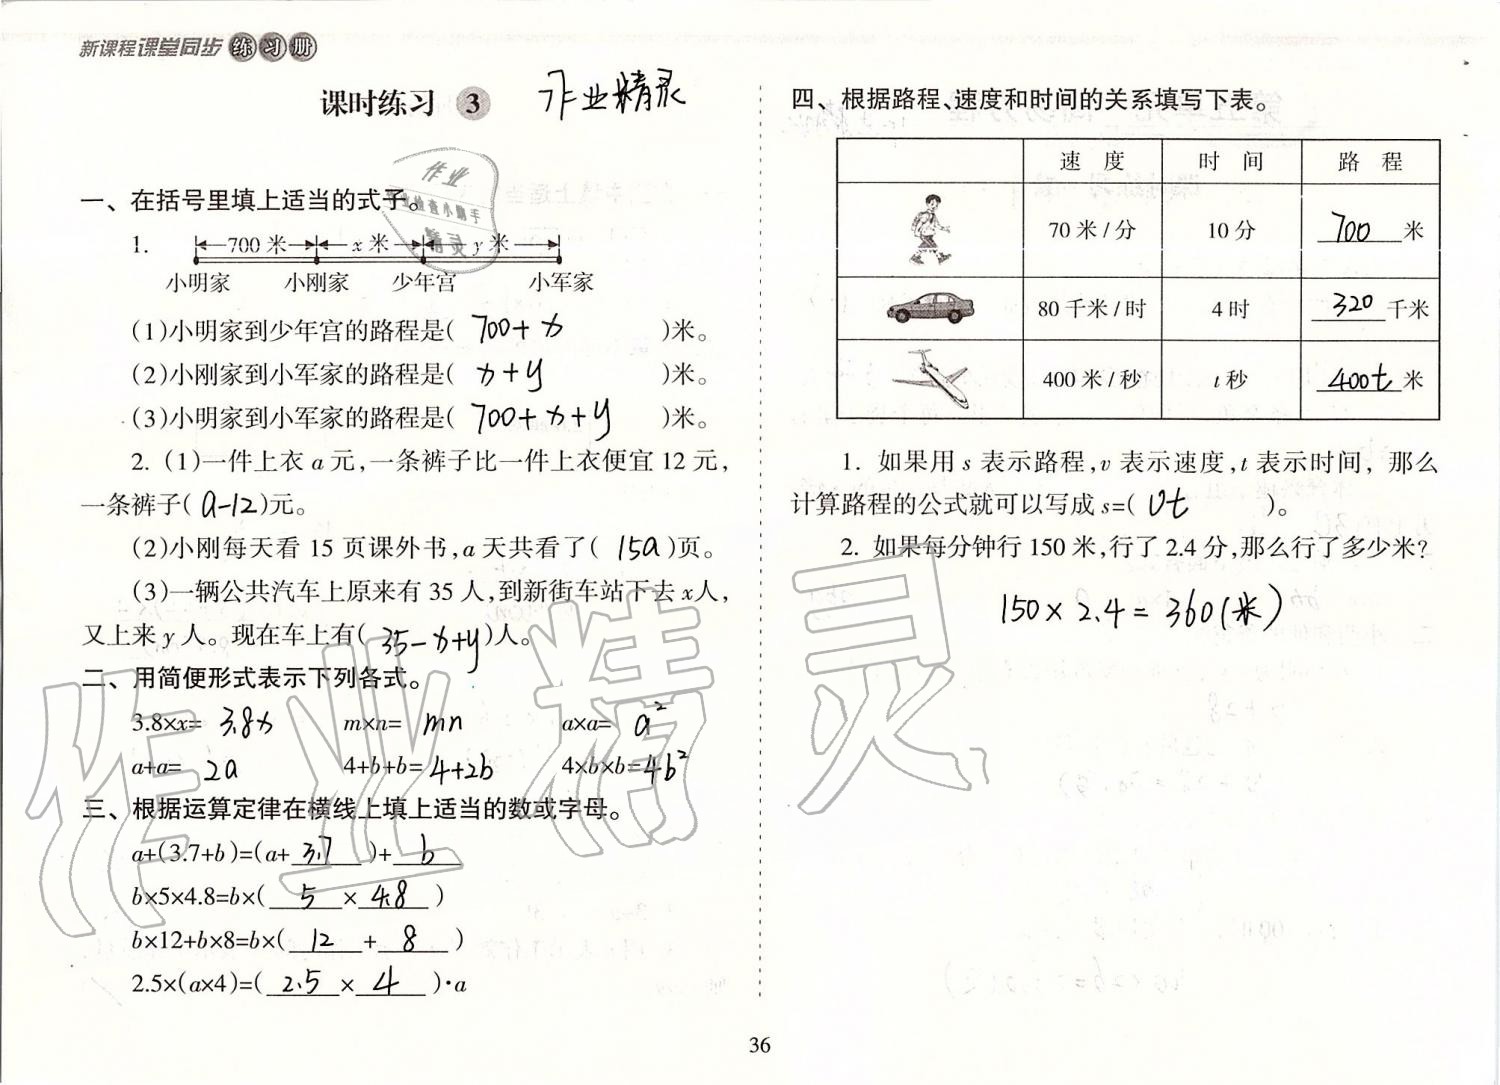 新课程课堂同步练习册
课时练习 3
作业精灵
作业
检查小助手
精灵
一、在括号里填上适当的式子。
1. 700 米 x 米 y 米
小明家 小刚家 少年宫 小军家
(1)小明家到少年宫的路程是( 700+x )米。
(2)小刚家到小军家的路程是( x+y )米。
(3)小明家到小军家的路程是( 700+x+y )米。
2. (1)一件上衣 a 元,一条裤子比一件上衣便宜 12 元,
一条裤子( a-12 )元。
(2)小刚每天看 15 页课外书,a 天共看了( 15a )页。
(3)一辆公共汽车上原来有 35 人,到新街车站下去 x人,
又上来 y 人。现在车上有( 35-x+y )人。
二、用简便形式表示下列各式。
3.8×x= 3.8x m×n= mn a×a= a²
a+a= 2a 4+b+b= 4+2b 4×b×b= 4b²
三、根据运算定律在横线上填上适当的数或字母。
a+(3.7+b)=(a+ 3.7 )+ b
b×5×4.8=b×( 5 × 4.8 )
b×12+b×8=b×( 12 + 8 )
2.5×(a×4)=( 2.5 × 4 )·a
四、根据路程、速度和时间的关系填写下表。
速 度 时 间 路 程
70 米/分 10 分 700 米
80 千米/时 4 时 320 千米
400 米/秒 t 秒 400t 米
1. 如果用 s 表示路程,v 表示速度,t 表示时间, 那么
计算路程的公式就可以写成 s=( vt )。
2. 如果每分钟行 150 米,行了 2.4 分,那么行了多少米?
150×2.4=360(米)
作业精灵
36